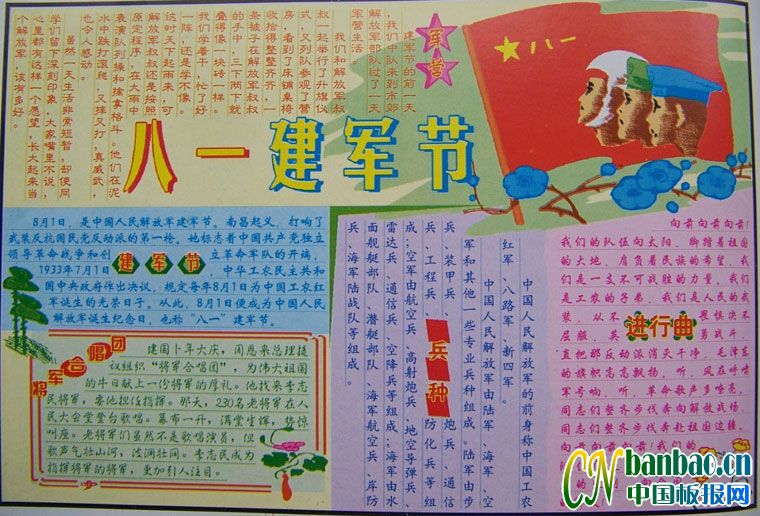 八一
八一建军节
军营
建军节的前一天
我们中队来到市郊
解放军部队过了一天
军营生活。
我们和解放军叔
叔一起举行了升旗仪
式，又列队参观了营
房，看到了床铺桌椅
收拾得整整齐齐，一
条被子在解放军叔叔
的手中，三下两下就
叠得像一块砖一样。
我们学着干，忙了好
一阵，还是学不像。
这时天下起雨来，可
解放军叔叔还是按照
原定程序，在大雨中
表演队列操和擒拿格斗。他们在泥
水中跌打滚爬，又摔又打，真威武，
也令人感动。
虽然一天生活非常短暂，却使同
学们留下深刻印象，大家嘴里不说，
心里都有这样一个愿望，长大起来当
个解放军，该有多好。
建军节
8月1日，是中国人民解放军建军节。南昌起义，打响了
武装反抗国民党反动派的第一枪。她标志着中国共产党独立
领导革命战争和创立革命军队的开端，
1933年7月1日中华工农民主共和
国中央政府作出决议，规定每年8月1日为中国工农红
军诞生的光荣日子。从此，8月1日便成为中国人民
解放军诞生纪念日，也称“八一”建军节。
将军合唱团
建国十年大庆，周恩来总理提
议组织“将军合唱团”，为伟大祖国
的生日献上一份将军的厚礼。他找来李志
民将军，要他担任指挥。那天，230名老将军在人
民大会堂登台歌唱。幕布一升，满堂生辉，势惊
叫座。老将军们虽然不是歌唱演员，但
歌声气壮山河，波澜壮阔。李志民成为
指挥将军的将军，更加引人注目。
兵种
中国人民解放军的前身称中国工农
红军、八路军、新四军。
中国人民解放军由陆军、海军、空
军和其他一些专业兵种组成。陆军由步
兵、装甲兵、炮兵、通信
兵、工程兵、防化兵等组
成；空军由航空兵、高射炮兵、地空导弹兵、
雷达兵、通信兵、空降兵等组成；海军由水
面舰艇部队、潜艇部队、海军航空兵、岸防
兵、海军陆战队等组成。
进行曲
向前向前向前！
我们的队伍向太阳，脚踏着祖国
的大地，肩负着民族的希望，我
们是一支不可战胜的力量，我们
是工农的子弟，我们是人民的武
装，从不畏惧决不
屈服，英勇战斗，
直把那反动派消灭干净，毛泽东
的旗帜高高飘扬，听，风在呼啸
军号响，听，革命歌声多嘹亮，
同志们整齐步伐奔向解放战场，
同志们整齐步伐奔赴祖国边疆，
向前向前向前！我们的
CN banbao.cn
中国板报网